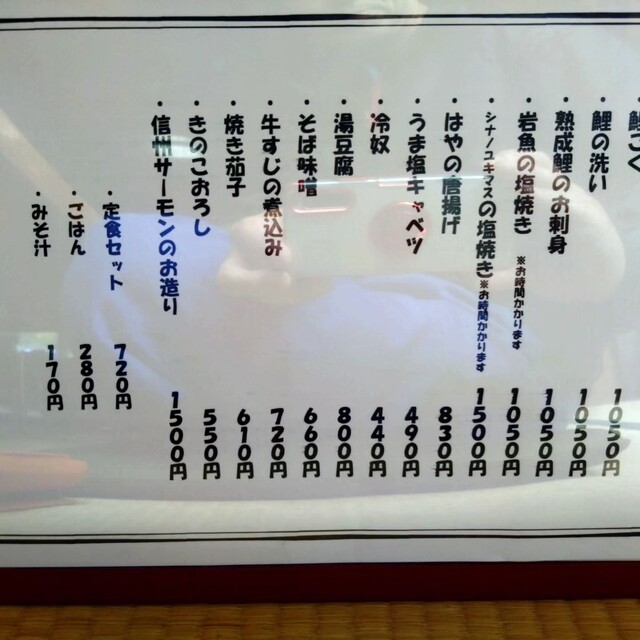 鯉こく 1050円
鯉の洗い 1050円
熟成鯉のお刺身 1050円
岩魚の塩焼き ※お時間かかります 1050円
シナノユキマスの塩焼き ※お時間かかります 1500円
はやの唐揚げ 830円
うま塩キャベツ 490円
冷奴 440円
湯豆腐 800円
そば味噌 660円
牛すじの煮込み 720円
焼き茄子 610円
きのこおろし 550円
信州サーモンのお造り 1500円
定食セット 720円
ごはん 280円
みそ汁 170円